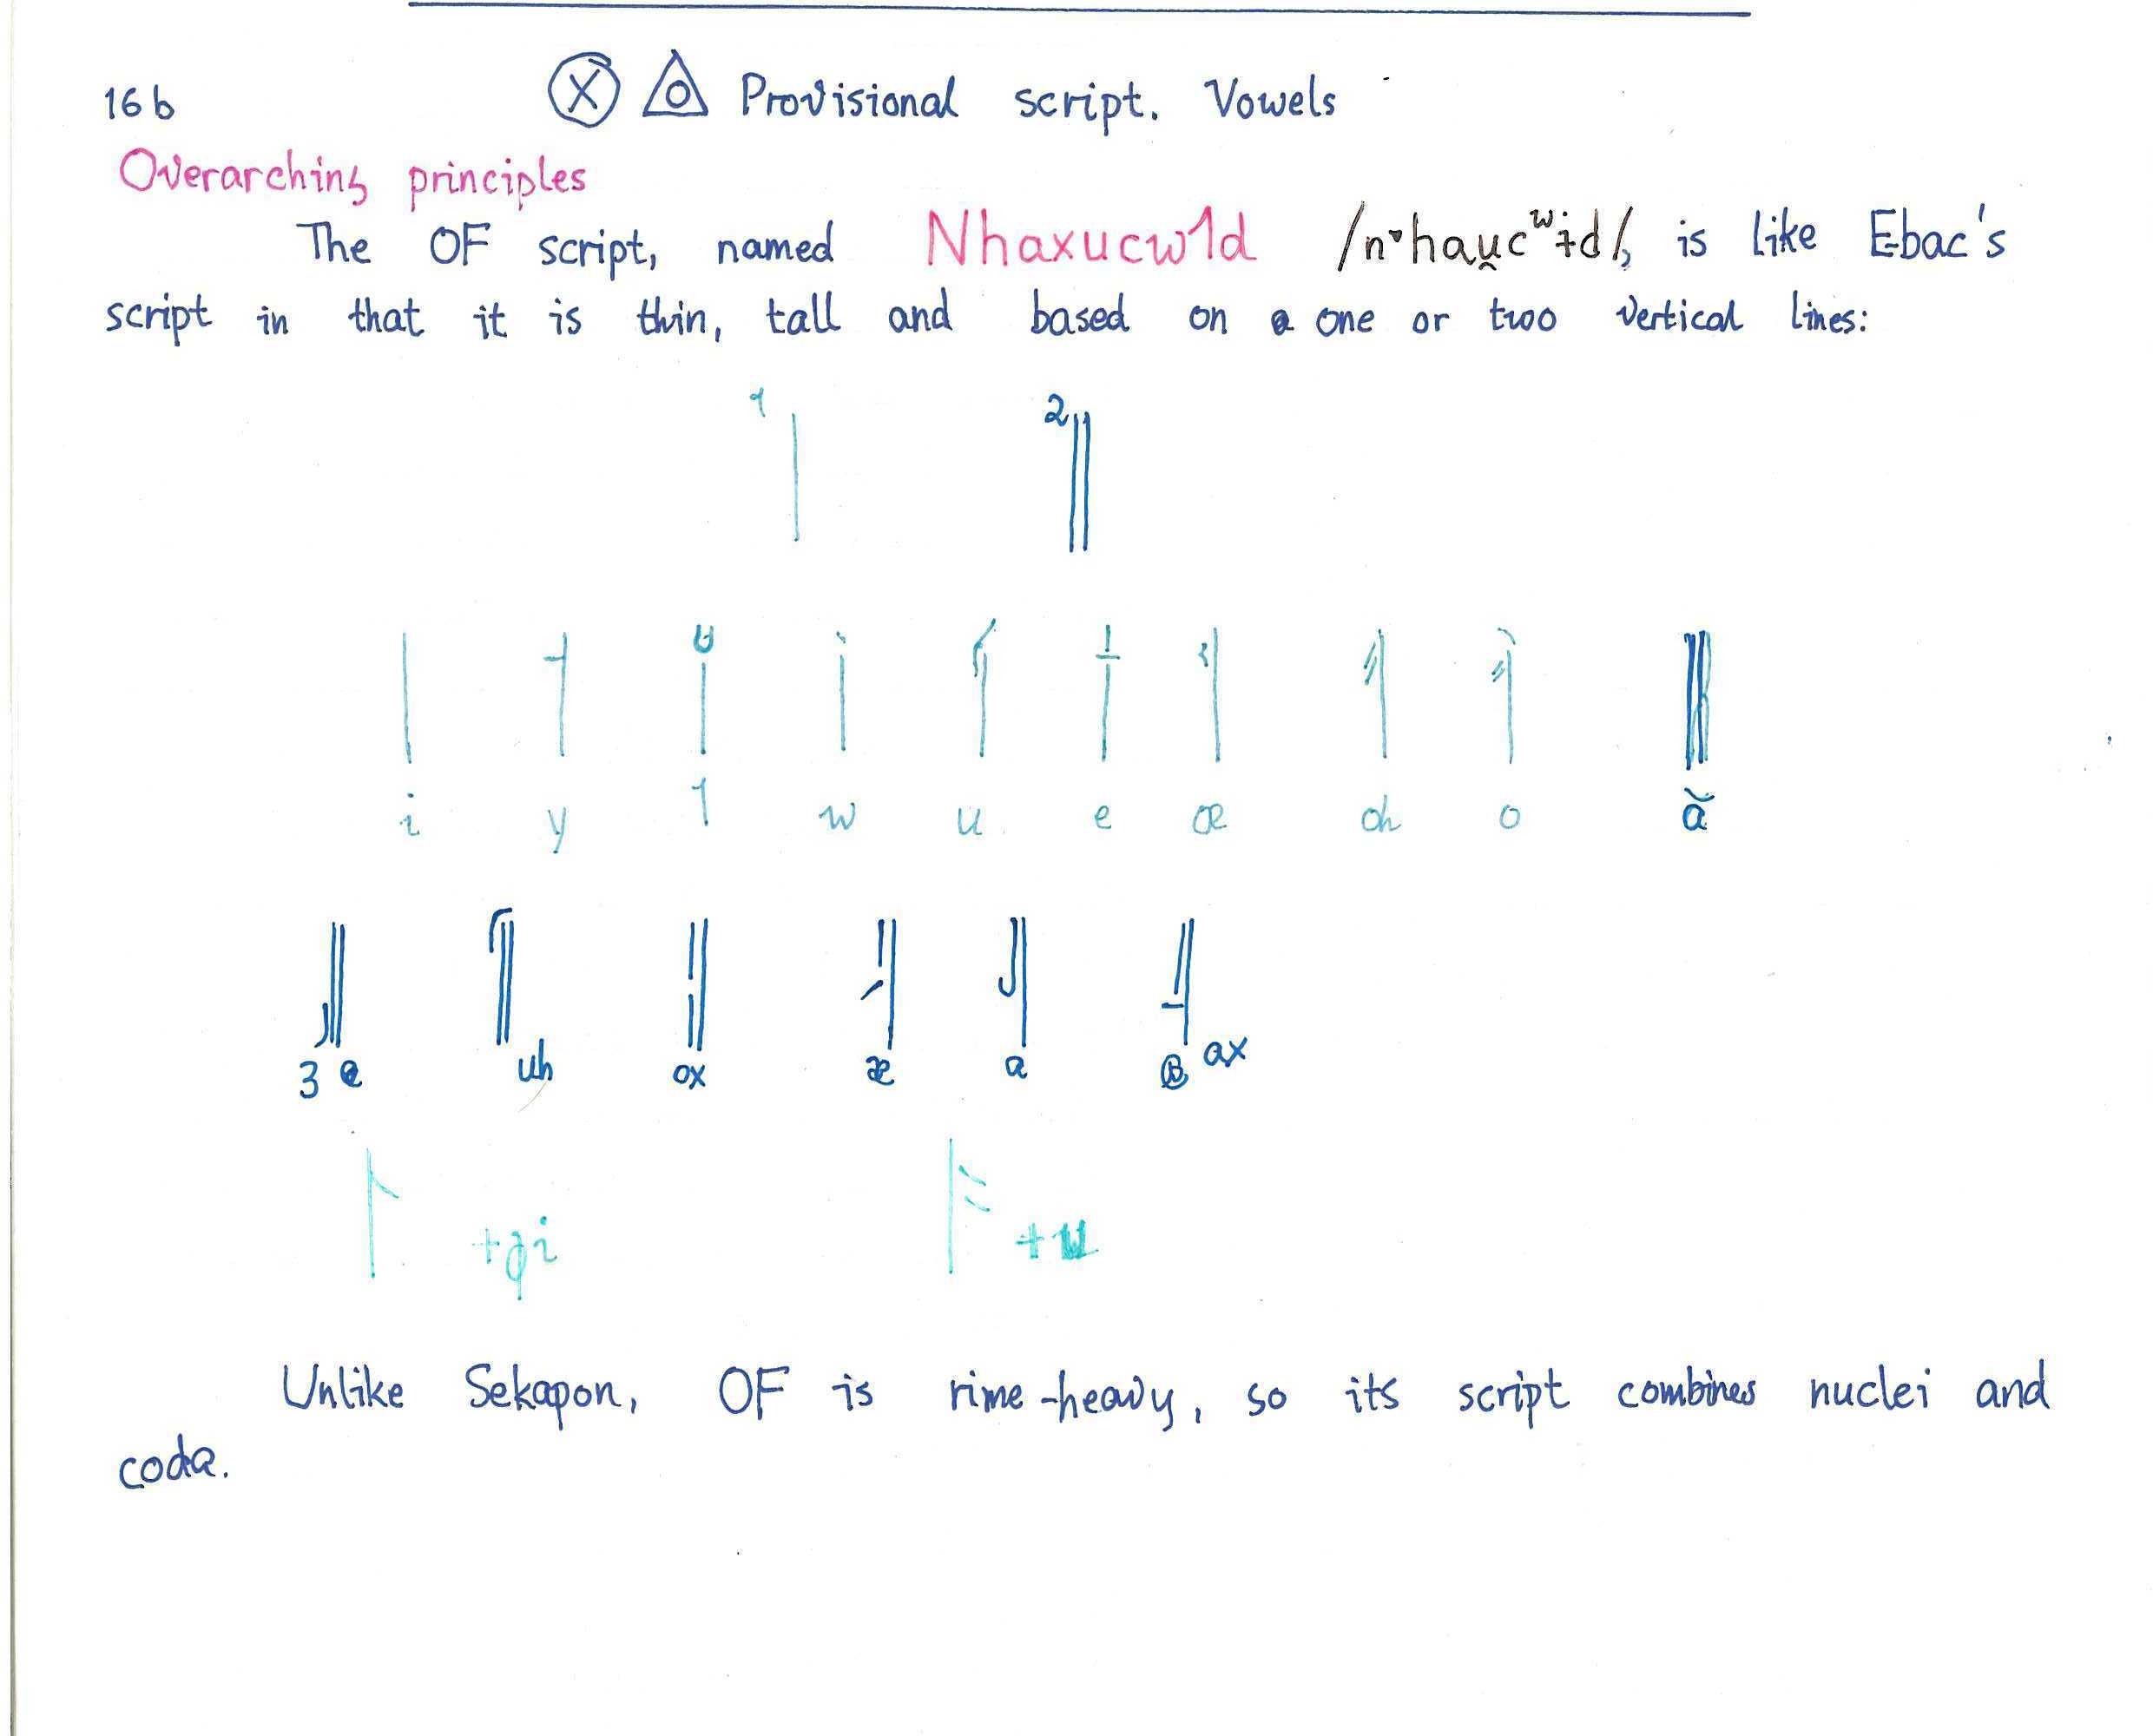 16b Ⓧ Provisional script. Vowels
Overarching principles
The OF script, named Nhaxucw1d /nʰhau̯cʷɨd/, is like Ebac's
script in that it is thin, tall and based on a one or two vertical lines:
1 2
i y 1 w u e œ oh o ă
3 e uh ox æ a ax
+ +u
Unlike Sekapon, OF is rime-heavy, so its script combines nuclei and
coda.